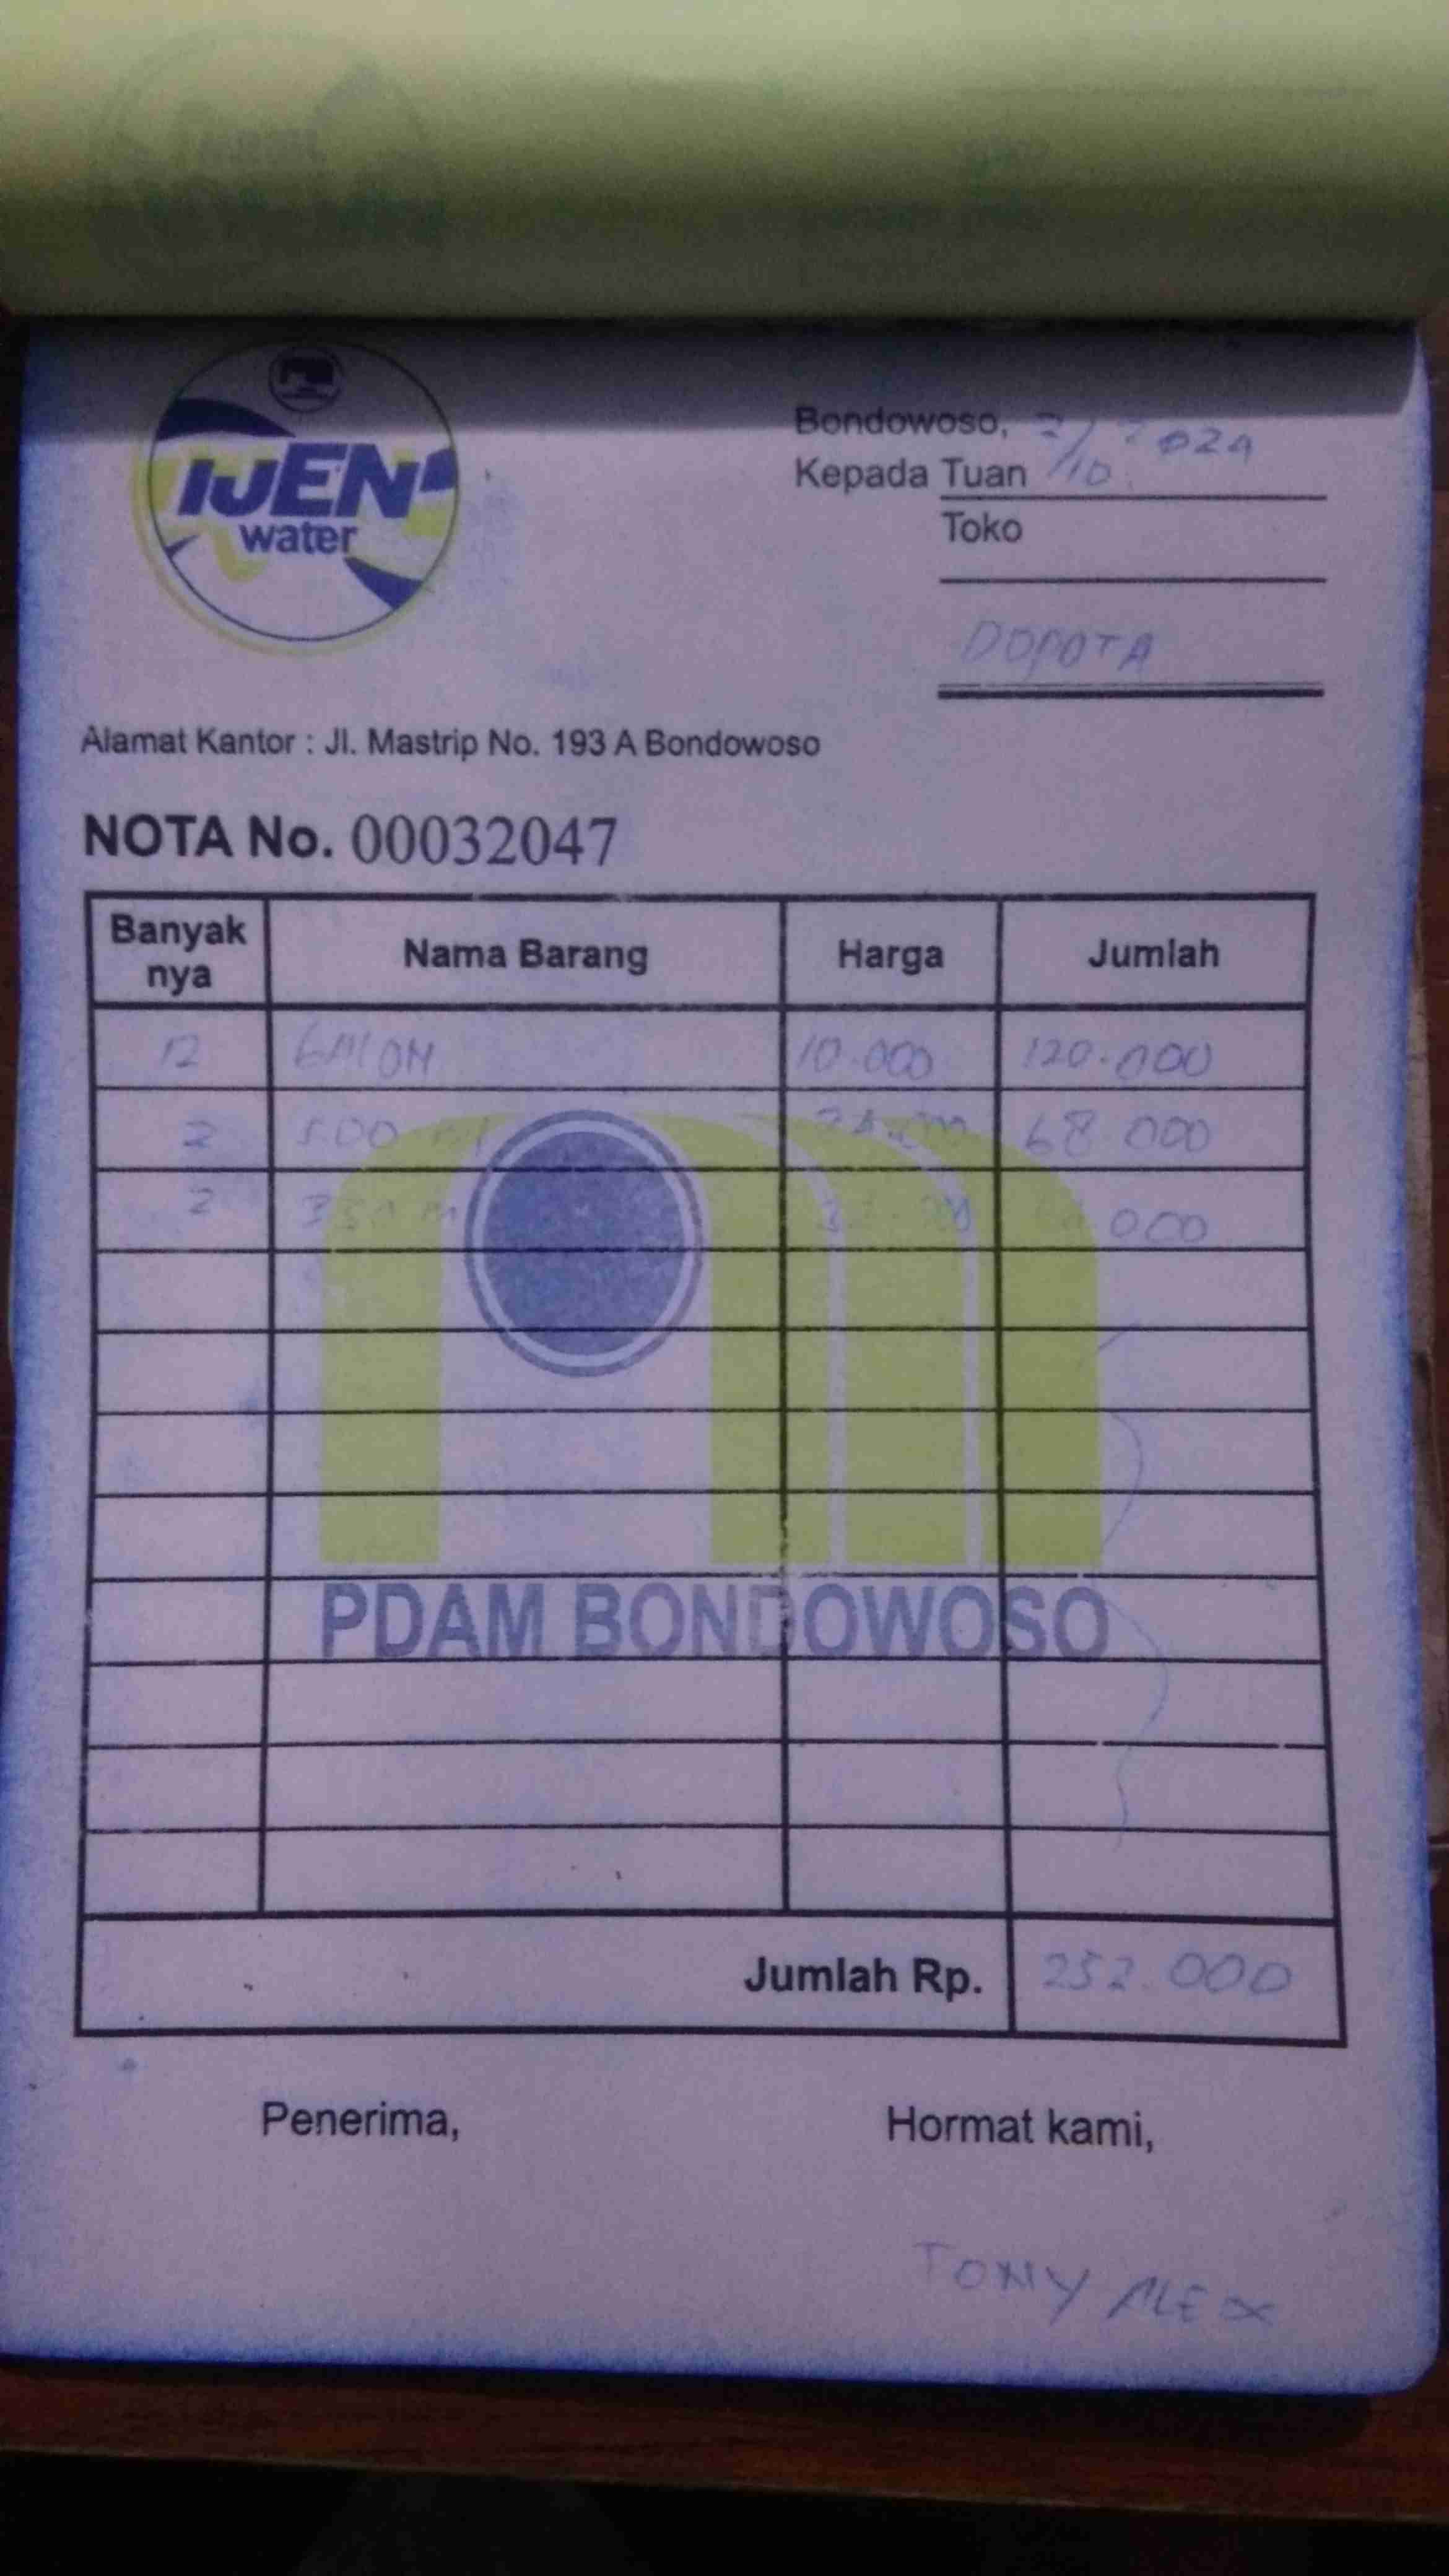 IJEN
water
Bondowoso, 2/10 2024
Kepada Tuan
Toko
DOPOTA
Alamat Kantor : Jl. Mastrip No. 193 A Bondowoso
NOTA No. 00032047
Banyak nya Nama Barang Harga Jumlah
12 GALON 10.000 120.000
2 500 ml 68 000
2 350 m 000
PDAM BONDOWOSO
Jumlah Rp. 252.000
Penerima, Hormat kami,
TONY ALEX